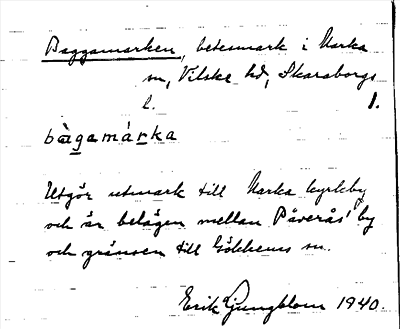 Baggamarken, betesmark i Marka
sn, Vilske hd, Skaraborgs
l. 1.
bàgamárka
Utgör utmark till Marka kyrkby
och är belägen mellan Påverås' by
och gränsen till Gökhems sn.
Erik Ljungblom 1940.